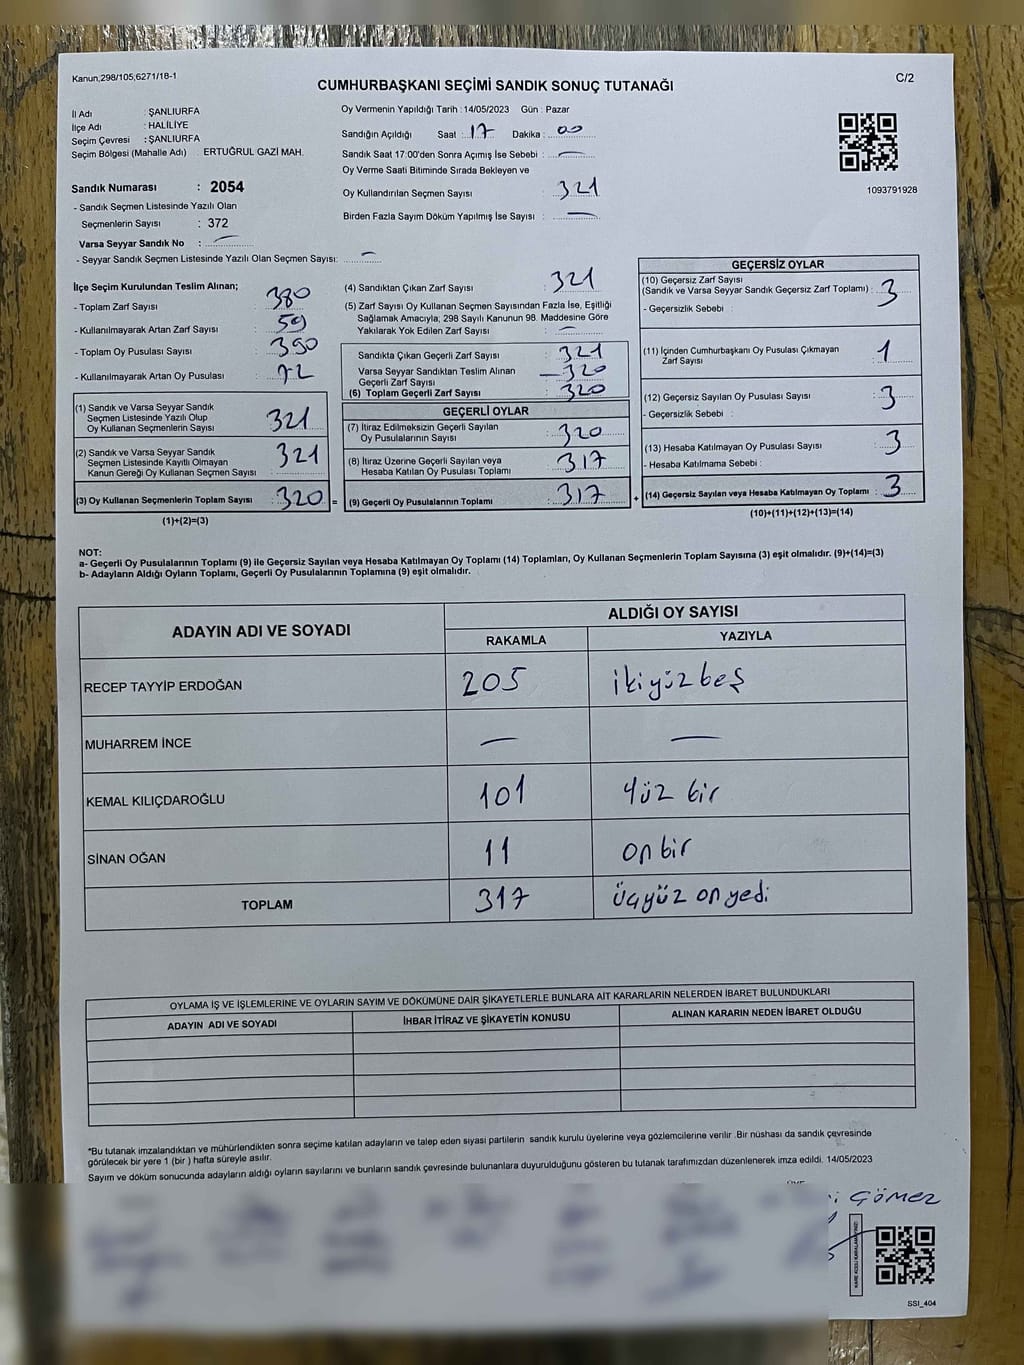 Kanun;298/105,6271/18-1
C/2
CUMHURBAŞKANI SEÇİMİ SANDIK SONUÇ TUTANAĞI
İl Adı : ŞANLIURFA
İlçe Adı : HALİLİYE
Seçim Çevresi : ŞANLIURFA
Seçim Bölgesi (Mahalle Adı) : ERTUĞRUL GAZİ MAH.
Sandık Numarası : 2054
- Sandık Seçmen Listesinde Yazılı Olan
Seçmenlerin Sayısı : 372
Varsa Seyyar Sandık No : —
- Seyyar Sandık Seçmen Listesinde Yazılı Olan Seçmen Sayısı: —
Oy Vermenin Yapıldığı Tarih :14/05/2023 Gün : Pazar
Sandığın Açıldığı Saat : 17 Dakika : 00
Sandık Saat 17:00'den Sonra Açımış İse Sebebi : —
Oy Verme Saati Bitiminde Sırada Bekleyen ve
Oy Kullandırılan Seçmen Sayısı : 321
Birden Fazla Sayım Döküm Yapılmış İse Sayısı : —
1093791928
İlçe Seçim Kurulundan Teslim Alınan;
- Toplam Zarf Sayısı : 380
- Kullanılmayarak Artan Zarf Sayısı : 59
- Toplam Oy Pusulası Sayısı : 390
- Kullanılmayarak Artan Oy Pusulası : 72
(1) Sandık ve Varsa Seyyar Sandık
Seçmen Listesinde Yazılı Olup
Oy Kullanan Seçmenlerin Sayısı : 321
(2) Sandık ve Varsa Seyyar Sandık
Seçmen Listesinde Kayıtlı Olmayan
Kanun Gereği Oy Kullanan Seçmen Sayısı : 321
(3) Oy Kullanan Seçmenlerin Toplam Sayısı : 320 =
(1)+(2)=(3)
(4) Sandıktan Çıkan Zarf Sayısı : 321
(5) Zarf Sayısı Oy Kullanan Seçmen Sayısından Fazla İse, Eşitliği
Sağlamak Amacıyla; 298 Sayılı Kanunun 98. Maddesine Göre
Yakılarak Yok Edilen Zarf Sayısı : —
Sandıkta Çıkan Geçerli Zarf Sayısı : 321
Varsa Seyyar Sandıktan Teslim Alınan
Geçerli Zarf Sayısı : 320
(6) Toplam Geçerli Zarf Sayısı : 320
GEÇERLİ OYLAR
(7) İtiraz Edilmeksizin Geçerli Sayılan
Oy Pusulalarının Sayısı : 320
(8) İtiraz Üzerine Geçerli Sayılan veya
Hesaba Katılan Oy Pusulası Toplamı : 317
(9) Geçerli Oy Pusulalarının Toplamı : 317 +
GEÇERSİZ OYLAR
(10) Geçersiz Zarf Sayısı
(Sandık ve Varsa Seyyar Sandık Geçersiz Zarf Toplamı) : 3
- Geçersizlik Sebebi :
(11) İçinden Cumhurbaşkanı Oy Pusulası Çıkmayan
Zarf Sayısı : 1
(12) Geçersiz Sayılan Oy Pusulası Sayısı : 3
- Geçersizlik Sebebi :
(13) Hesaba Katılmayan Oy Pusulası Sayısı : 3
- Hesaba Katılmama Sebebi :
(14) Geçersiz Sayılan veya Hesaba Katılmayan Oy Toplamı : 3
(10)+(11)+(12)+(13)=(14)
NOT:
a- Geçerli Oy Pusulalarının Toplamı (9) ile Geçersiz Sayılan veya Hesaba Katılmayan Oy Toplamı (14) Toplamları, Oy Kullanan Seçmenlerin Toplam Sayısına (3) eşit olmalıdır. (9)+(14)=(3)
b- Adayların Aldığı Oyların Toplamı, Geçerli Oy Pusulalarının Toplamına (9) eşit olmalıdır.
ADAYIN ADI VE SOYADI
ALDIĞI OY SAYISI
RAKAMLA YAZIYLA
RECEP TAYYİP ERDOĞAN 205 ikiyüzbeş
MUHARREM İNCE — —
KEMAL KILIÇDAROĞLU 101 Yüz bir
SİNAN OĞAN 11 on bir
TOPLAM 317 üçyüz onyedi
OYLAMA İŞ VE İŞLEMLERİNE VE OYLARIN SAYIM VE DÖKÜMÜNE DAİR ŞİKAYETLERLE BUNLARA AİT KARARLARIN NELERDEN İBARET BULUNDUKLARI
ADAYIN ADI VE SOYADI İHBAR İTİRAZ VE ŞİKAYETİN KONUSU ALINAN KARARIN NEDEN İBARET OLDUĞU
*Bu tutanak imzalandıktan ve mühürlendikten sonra seçime katılan adayların ve talep eden siyasi partilerin sandık kurulu üyelerine veya gözlemcilerine verilir .Bir nüshası da sandık çevresinde
görülecek bir yere 1 (bir ) hafta süreyle asılır.
Sayım ve döküm sonucunda adayların aldığı oyların sayılarını ve bunların sandık çevresinde bulunanlara duyurulduğunu gösteren bu tutanak tarafımızdan düzenlenerek imza edildi. 14/05/2023
GÖMEZ
SSI_404